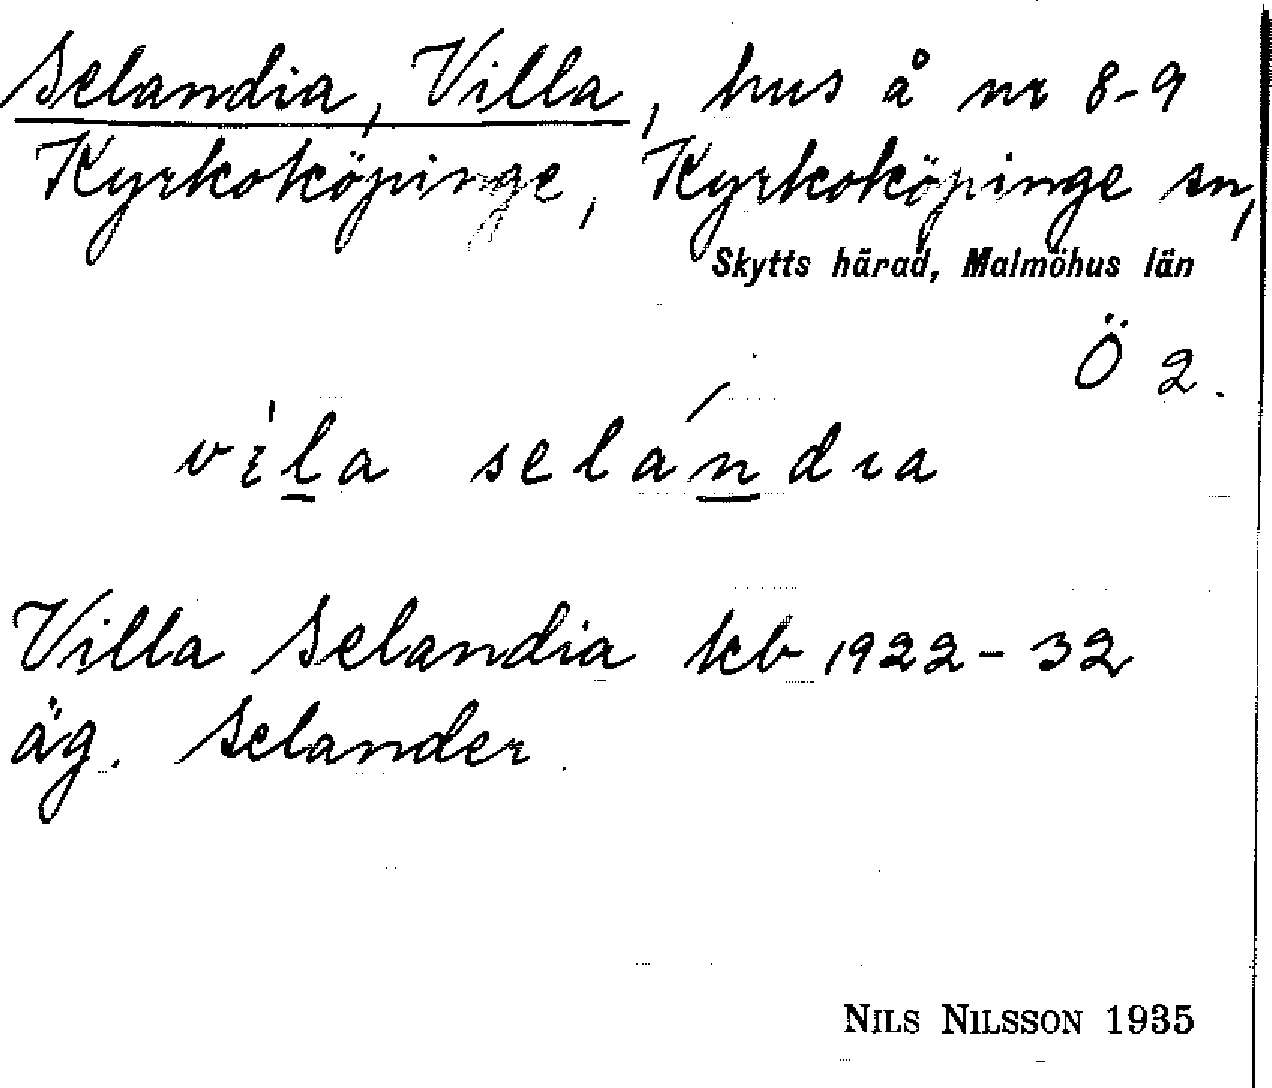 Selandia, Villa, hus å nr 8-9
Kyrkoköpinge, Kyrkoköpinge sn,
Skytts härad, Malmöhus län
Ö 2.
vìla selándia
Villa Selandia kb 1922-32
äg. Selander.
NILS NILSSON 1935